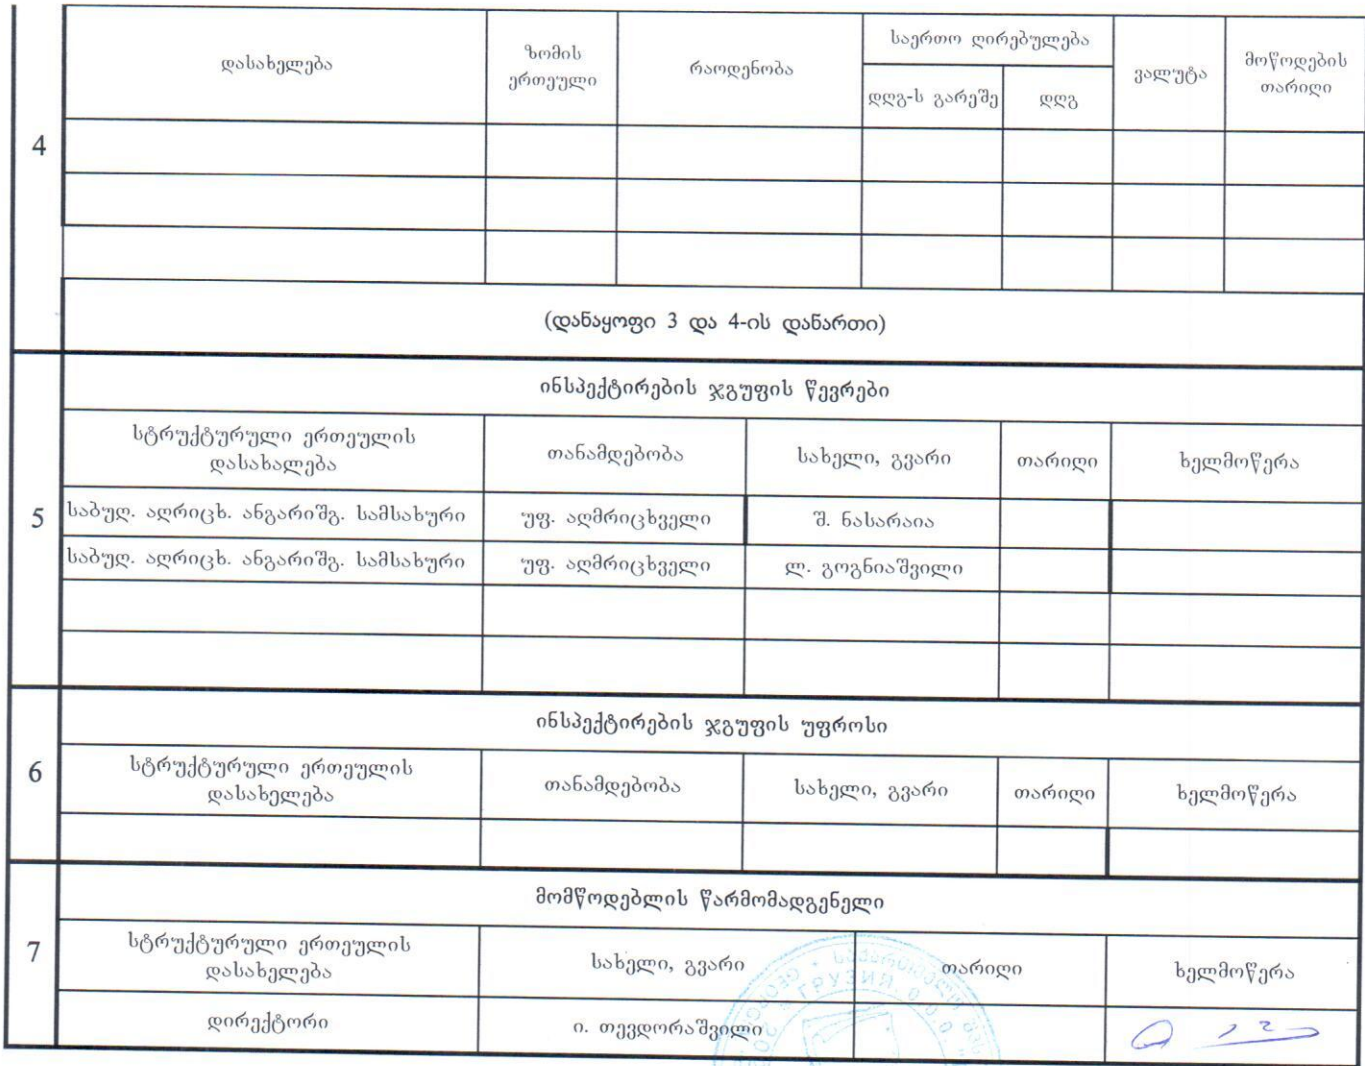 4
დასახელება
ზომის
ერთეული
რაოდენობა
საერთო ღირებულება
დღგ-ს გარეშე
დღგ
ვალუტა
მოწოდების
თარიღი
(დანაყოფი 3 და 4-ის დანართი)
5
ინსპექტირების ჯგუფის წევრები
სტრუქტურული ერთეულის
დასახალება
თანამდებობა
სახელი, გვარი
თარიღი
ხელმოწერა
საბუღ. აღრიცხ. ანგარიშგ. სამსახური
უფ. აღმრიცხველი
შ. ნასარაია
საბუღ. აღრიცხ. ანგარიშგ. სამსახური
უფ. აღმრიცხველი
ლ. გოგნიაშვილი
6
ინსპექტირების ჯგუფის უფროსი
სტრუქტურული ერთეულის
დასახელება
თანამდებობა
სახელი, გვარი
თარიღი
ხელმოწერა
7
მომწოდებლის წარმომადგენელი
სტრუქტურული ერთეულის
დასახელება
სახელი, გვარი
თარიღი
ხელმოწერა
დირექტორი
ი. თევდორაშვილი
ГРУЗИЯ